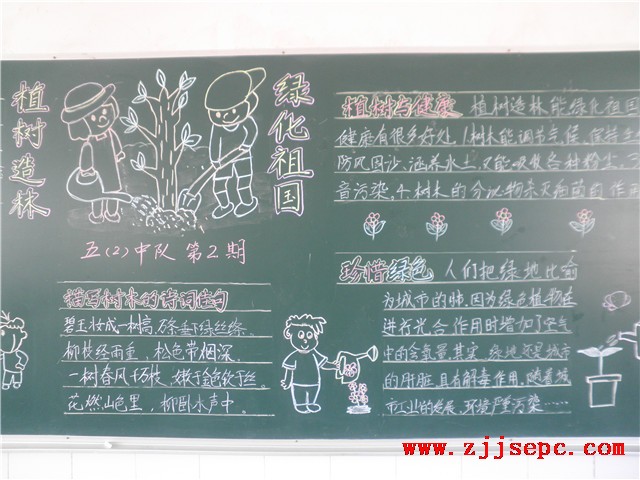 植树造林
绿化祖国
五(2)中队 第2期
描写树木的诗词佳句
碧玉妆成一树高,万条垂下绿丝绦。
柳枝经雨重,松色带烟深。
一树春风千万枝,嫩于金色软于丝。
花燃山色里,柳卧水声中。
植树与健康 植树造林能绿化祖国
健康有很多好处,1树木能调节气候、保持生
防风固沙、涵养水土,又能吸收各种粉尘、
音污染。4、树木的分泌物杀灭细菌的作
珍惜绿色 人们把绿地比喻
为城市的肺,因为绿色植物在
进行光合作用时增加了空气
中的含氧量,其实,绿地还是城市
的肝脏,具有解毒作用,随着城
市工业的发展,环境严重污染……
www.zjjsepc.com